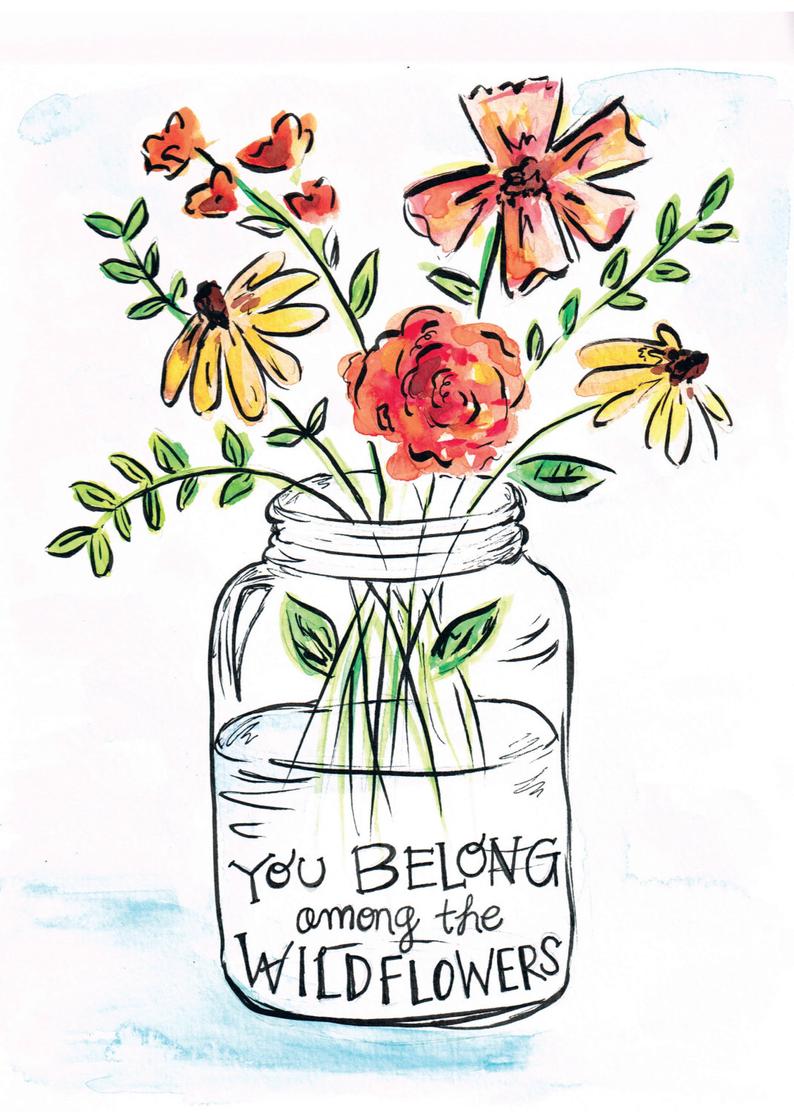 YOU BELONG
among the
WILDFLOWERS